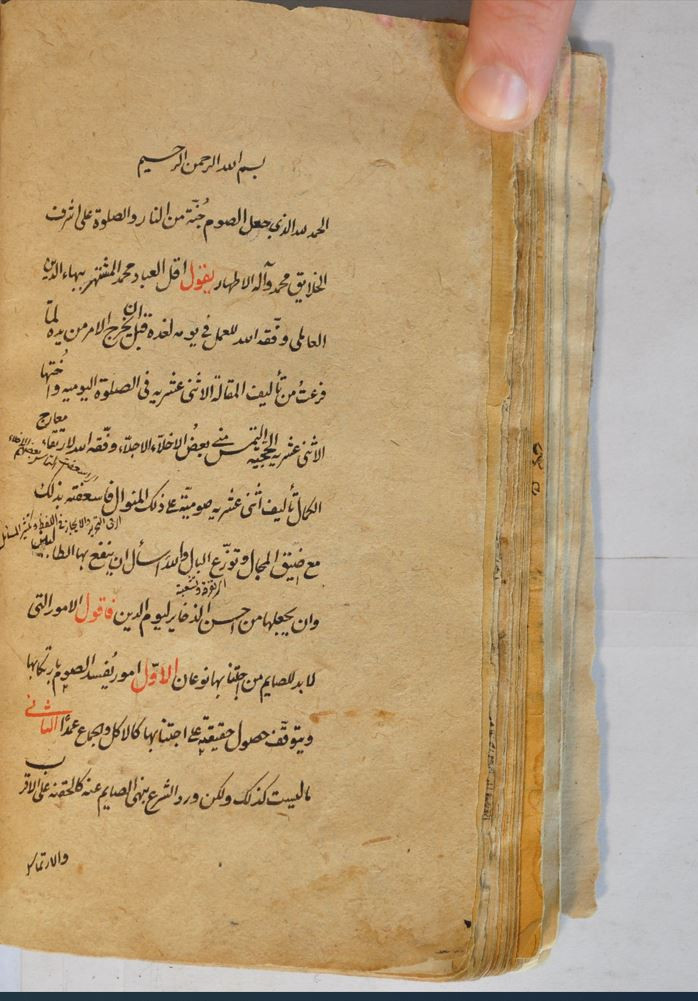 بسم الله الرحمن الرحيم
الحمد لله الذى جعل الصوم جُنّة من النار والصلوة على اشرف
الخلايق محمد وآله الاطهار يقول اقل العباد محمد المشتهر ببهاء الدين
العاملى وفّقه الله للعمل فى يومه لغده قبل ان يخرج الامر من يده لمّا
فرغتُ من تأليف المقالة الاثنى عشريه فى الصلوة اليوميه واُختها
الاثنى عشريه الحجّيّه التمس منّى بعضُ الاخلّاء الاجلّاء وفّقه الله لارتقاء معارج
الكمال تأليف اثنى عشريه صوميّة على ذلك المنوال فاسعفته بذلك
مع ضيق المجال وتوزّع البال والله اسأل ان ينفع بها الطالبين
وان يجعلها من احسن الذخاير ليوم الدين فاقول الامور التى
لابد للصايم من اجتنابها نوعان الاوّل امور يُفسد الصوم بارتكابها
ويتوقّف حصول حقيقته على اجتنابها كالاكل والجماع عمدًا الثانى
ماليست كذلك ولكن ورد الشرع بنهى الصايم عنه كالحقنه على الاقرب
والارتماس